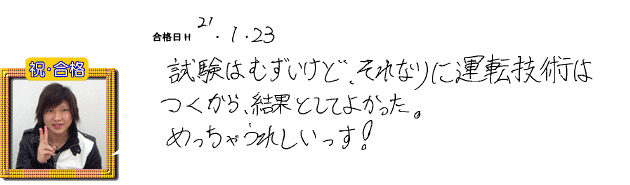 合格日H 21.1.23
祝・合格
試験はむずいけど、それなりに運転技術は
つくから、結果としてよかった。
めっちゃうれしいっす!